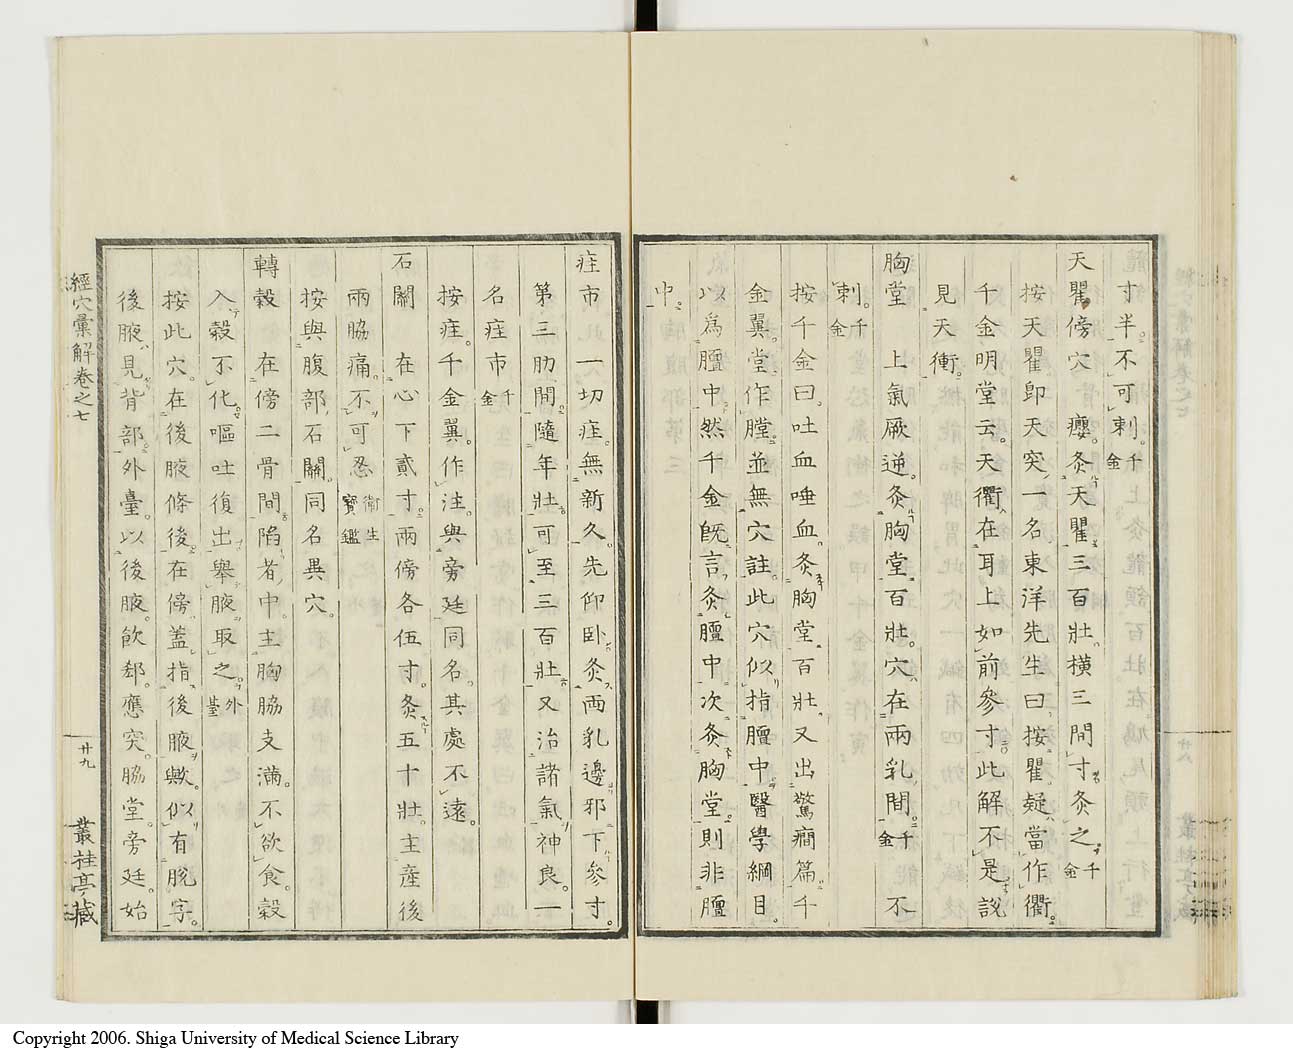 寸半。不可刺。千金
天瞿傍穴　癭。灸天瞿三百壯。横三間寸灸之千金
按天瞿卽天突一名東洋先生曰按瞿疑當作衢。
千金明堂云。天衢在耳上如前參寸此解不是説
見天衝。
胸堂　上氣厥逆。灸胸堂百壯。穴在兩乳間。千金　不
刺。千金
按千金曰。吐血唾血。灸胸堂百壯。又出驚癎篇千
金翼。堂作膛。並無穴註。此穴似指膻中。醫學綱目。
以爲膻中。然千金既言灸膻中次灸胸堂。則非膻
中。
疰市　一切疰。無新久。先仰卧灸兩乳邊邪下參寸。
第三肋間。隨年壯。可至三百壯又治諸氣神良。一
名疰市千金
按疰。千金翼。作注。與旁廷同名。其處不遠。
石關　在心下貳寸。兩傍各伍寸。灸五十壯。主産後
兩脇痛。不可忍衛生寶鑑
按與腹部。石關。同名異穴。
轉穀　在傍二骨間陷者中。主胸脇支滿。不欲食。穀
入不化。嘔吐復出擧腋取之。外臺
按此穴。在後腋條後。在傍。蓋指後腋歟。似有脱字。
後腋。見背部。外臺。以後腋。飮郄。應突。脇堂。旁廷。始
經穴彙解卷之七
廿九
叢桂亭藏